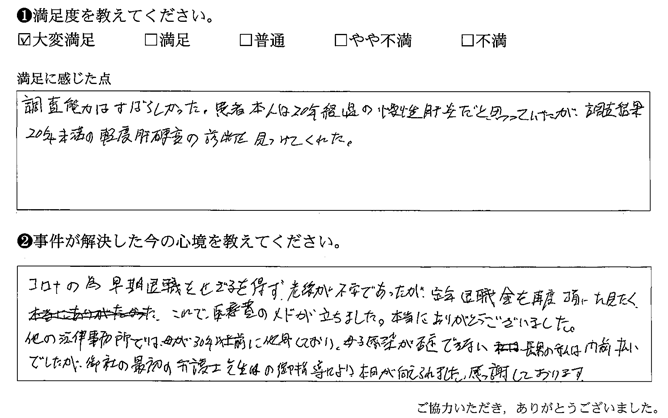 ❶満足度を教えてください。
☑大変満足 □満足 □普通 □やや不満 □不満
満足に感じた点
調査能力はすばらしかった。患者本人は20年経過の慢性肝炎だと思っていたが 調査結果
20年未満の軽度肝硬変の診断を見つけてくれた。
❷事件が解決した今の心境を教えてください。
コロナの為 早期退職をせざるを得ず、老後が不安であったが、定年退職金を再度頂いた
本当にありがたかった。これで、医療費のメドが立ちました。本当にありがとうございました。
他の法律事務所では、母が30年以上前に他界しており、母子感染が証明できない 長男の私は
でしたが、御社の最初の弁護士先生の御指導により本日が迎えられました。感謝しております
ご協力いただき，ありがとうございました。